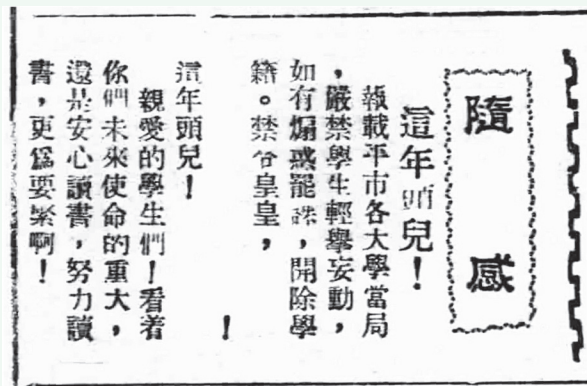 隨感
這年頭兒！
報載平市各大學當局
，嚴禁學生輕舉妄動，
如有煽惑罷課，開除學
籍。禁令皇皇，
！
這年頭兒！
親愛的學生們！看着
你們未來使命的重大，
還是安心讀書，努力讀
書，更爲要緊啊！